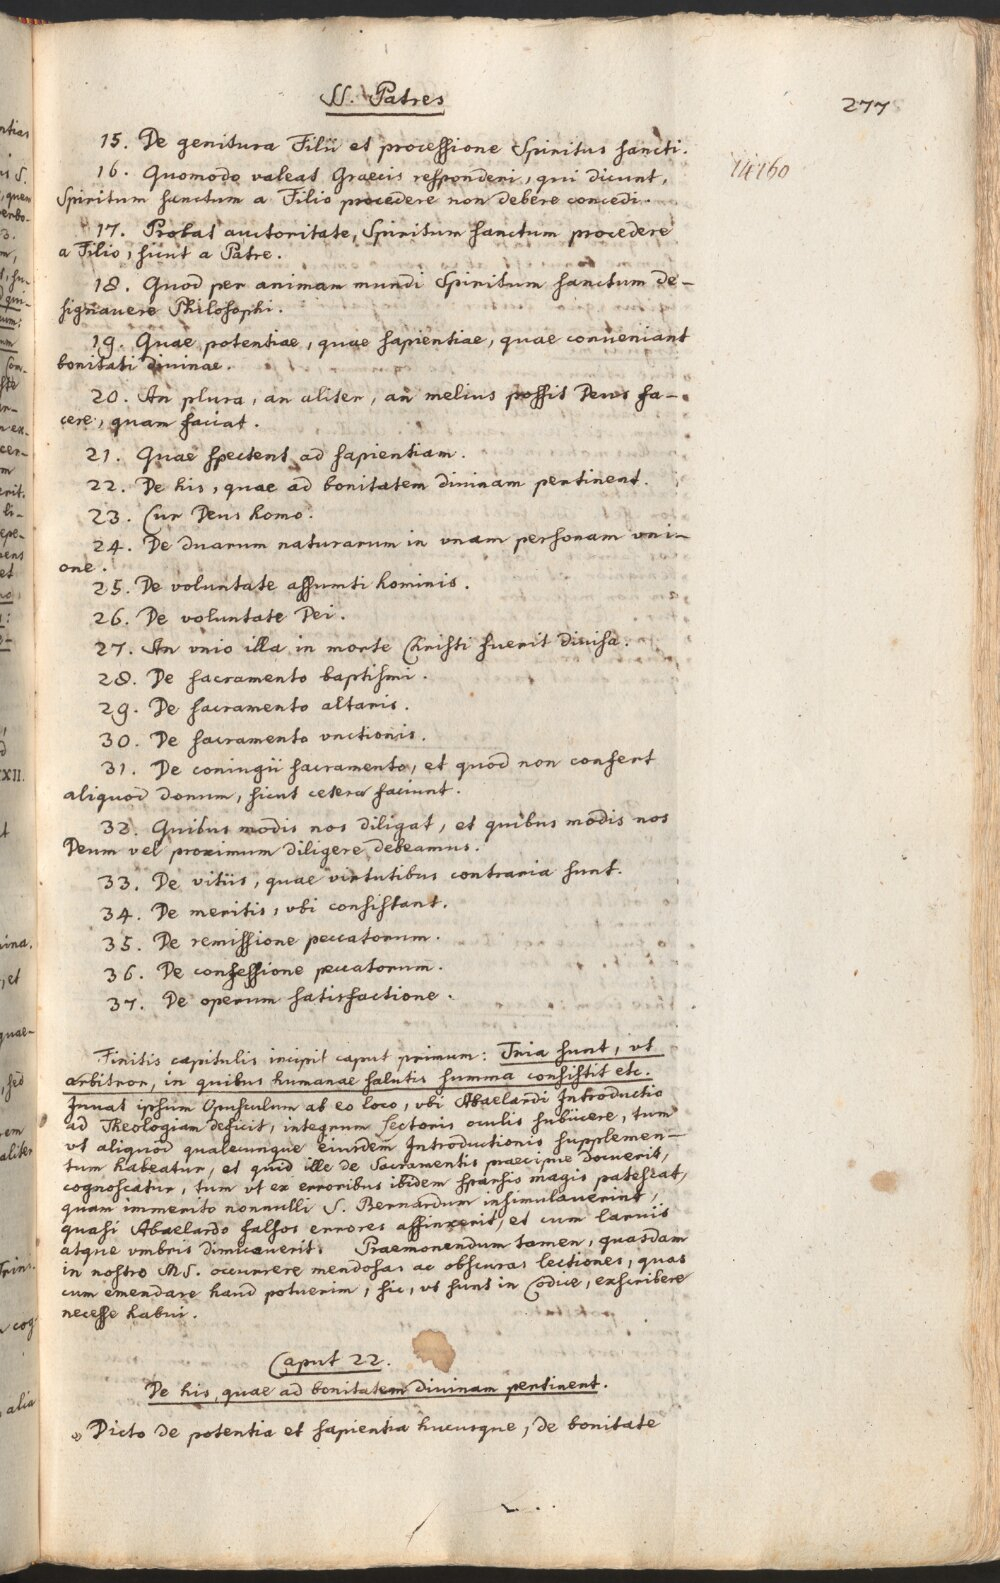 SS. Patres
277
15. De genitura Filii et processione Spiritus sancti.
14160
16. Quomodo valeat Graecis responderi, qui dicunt,
Spiritum sanctum a Filio procedere non debere concedi.
17. Probat auctoritate, Spiritum sanctum procedere
a Filio, sicut a Patre.
18. Quod per animam mundi Spiritum sanctum de-
signauere Philosophi.
19. Quae potentiae, quae sapientiae, quae conueniant
bonitati diuinae.
20. An plura, an aliter, an melius possit Deus fa-
cere, quam faciat.
21. Quae spectent ad sapientiam.
22. De his, quae ad bonitatem diuinam pertinent.
23. Cur Deus homo.
24. De duarum naturarum in vnam personam vni-
one.
25. De voluntate assumti hominis.
26. De voluntate Dei.
27. An vnio illa in morte Christi fuerit diuisa.
28. De sacramento baptismi.
29. De sacramento altaris.
30. De sacramento vnctionis.
31. De coniugii sacramento, et quod non confert
aliquod donum, sicut cetera faciunt.
32. Quibus modis nos diligat, et quibus modis nos
Deum vel proximum diligere debeamus.
33. De vitiis, quae virtutibus contraria sunt.
34. De meritis, vbi consistant.
35. De remissione peccatorum.
36. De confessione peccatorum.
37. De operum satisfactione.
Finitis capitulis incipit caput primum: Tria sunt, vt
arbitror, in quibus humanae salutis summa consistit etc.
Iuuat ipsum Opusculum ab eo loco, vbi Abaelardi Introductio
ad Theologiam deficit, integrum lectoris oculis subiicere, tum
vt aliquod qualecunque eiusdem Introductionis supplemen-
tum habeatur, et quid ille de Sacramentis praecipue docuerit,
cognoscatur, tum vt ex erroribus ibidem sparsis magis patescat,
quam immerito nonnulli S. Bernardum insimulauerint,
quasi Abaelardo falsos errores affinxerit, et cum laruis
atque vmbris dimicauerit. Praemonendum tamen, quasdam
in nostro MS. occurrere mendosas ac obscuras lectiones, quas
cum emendare haud potuerim, sic, vt sunt in Codice, exscribere
necesse habui.
Caput 22.
De his, quae ad bonitatem diuinam pertinent.
Dicto de potentia et sapientia hucusque, de bonitate